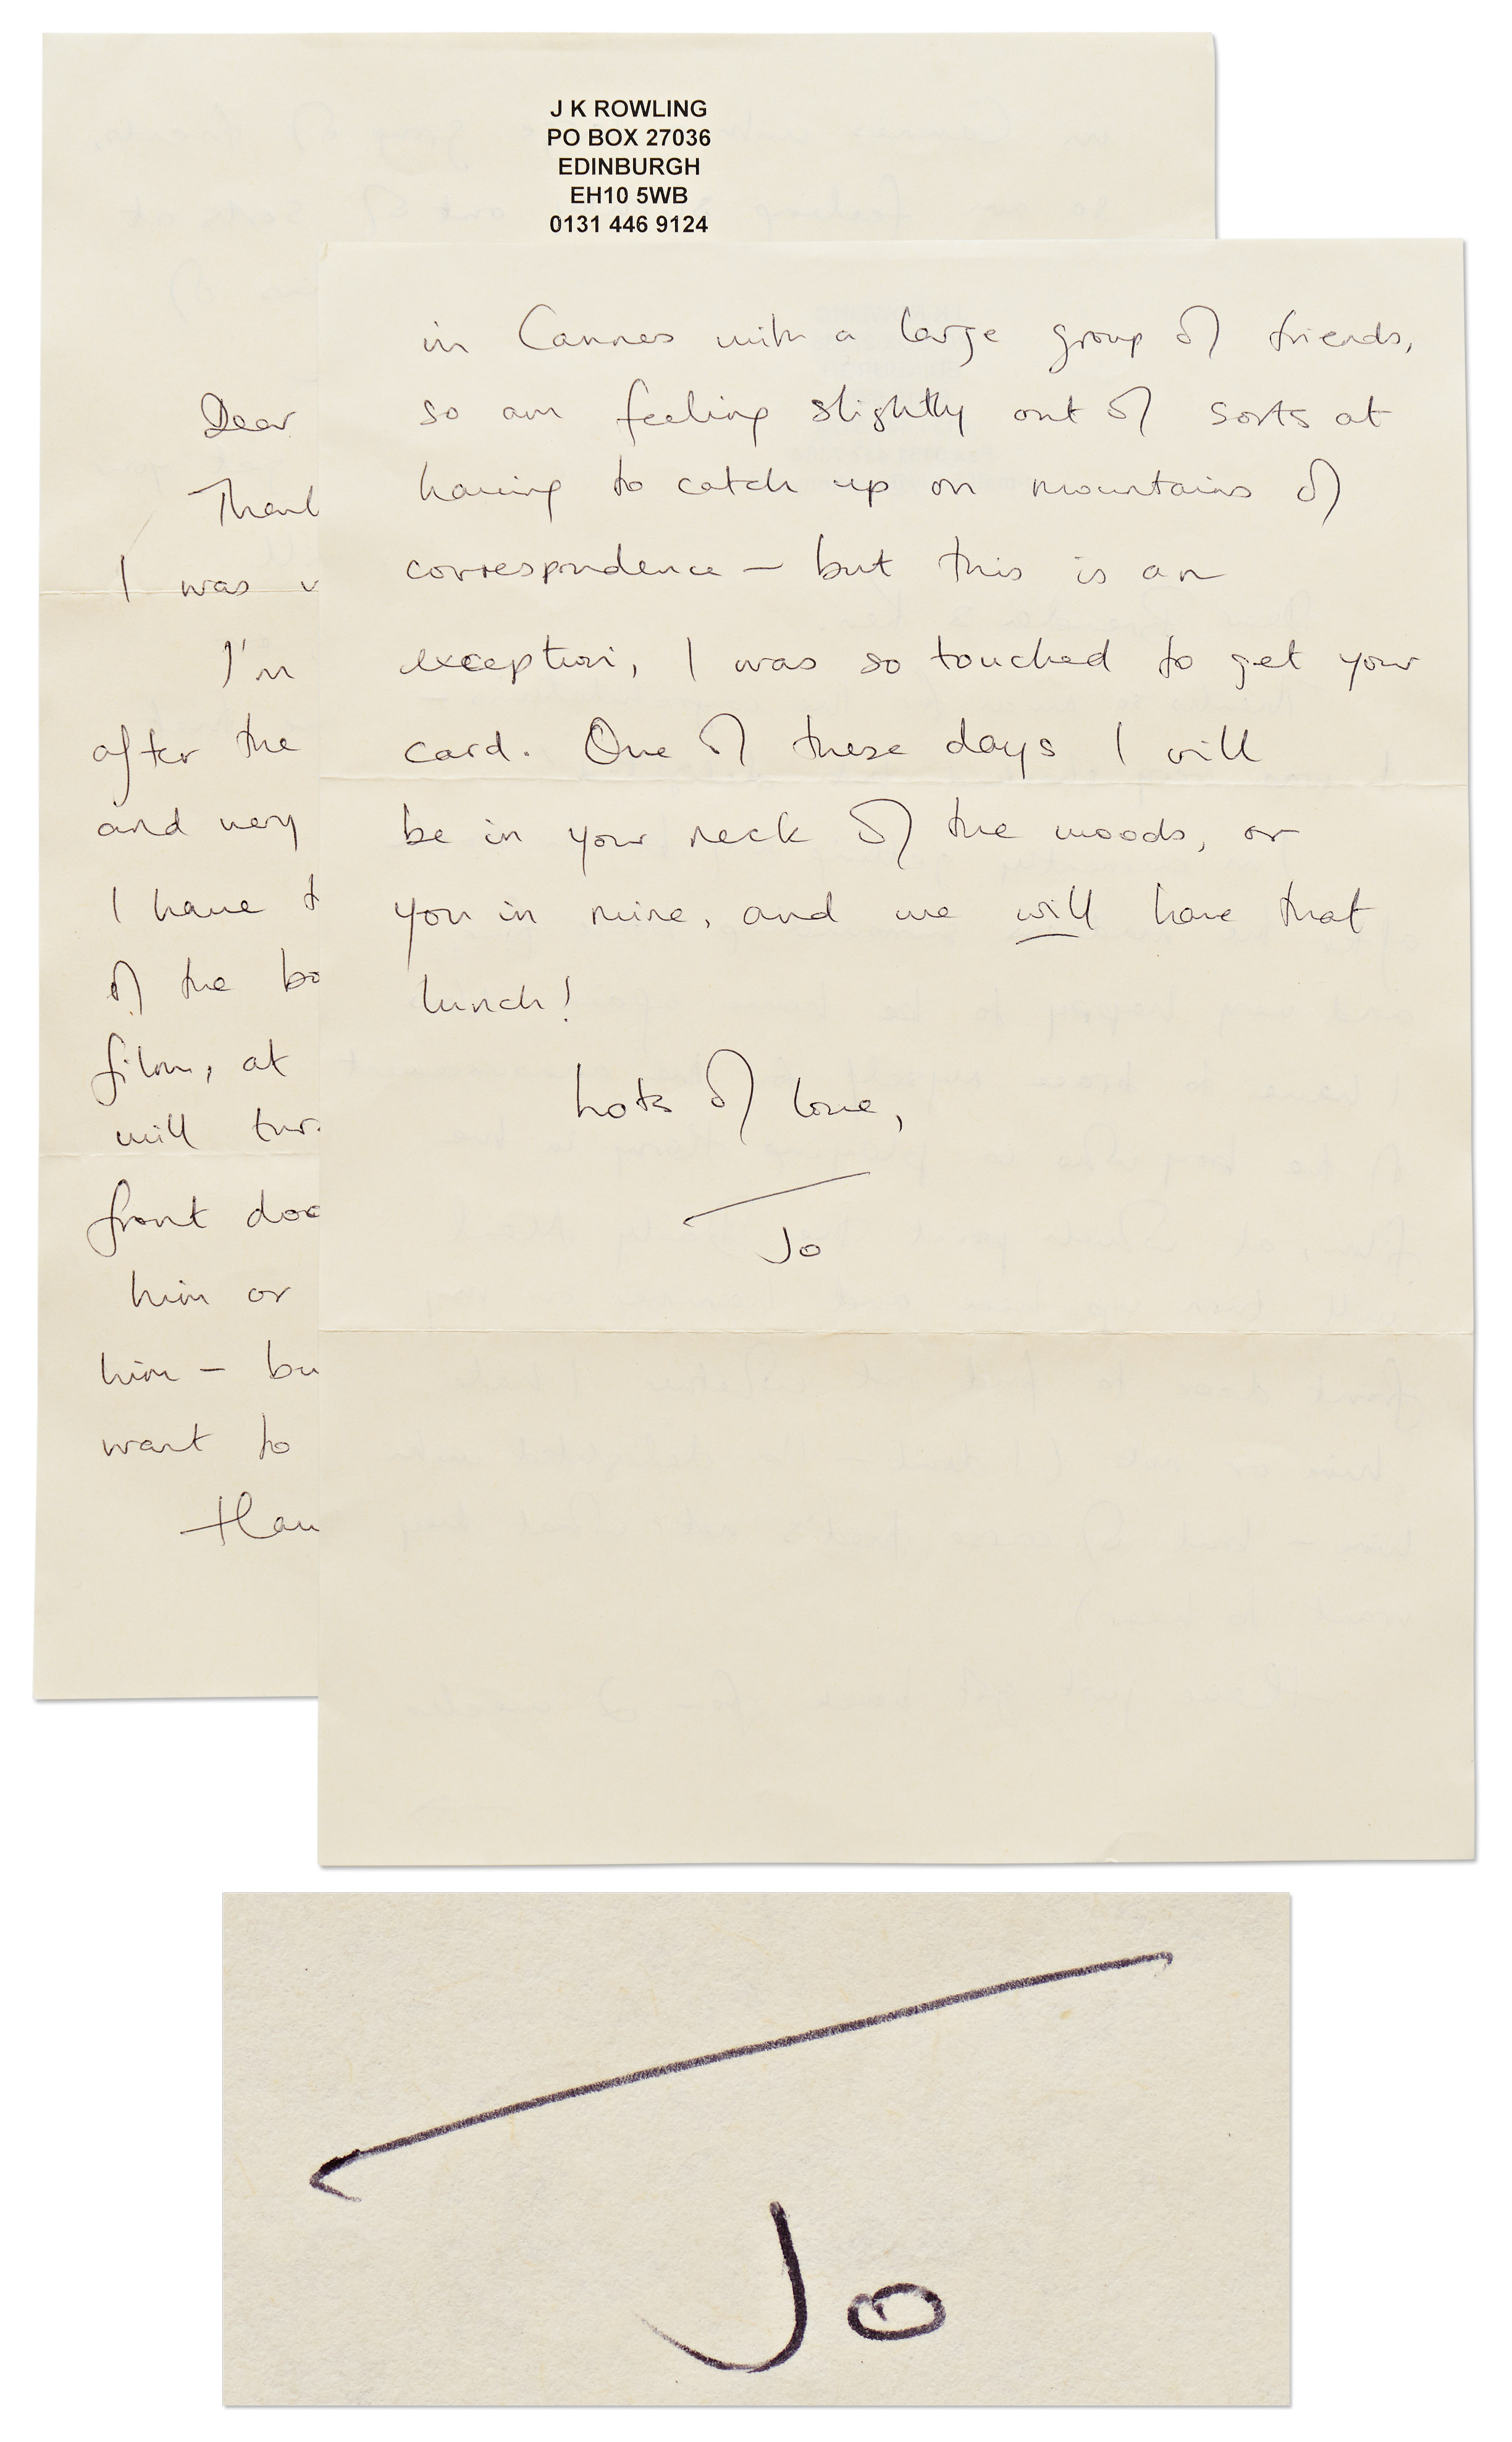 J K ROWLING
PO BOX 27036
EDINBURGH
EH10 5WB
0131 446 9124
Dear
Thank
I was v
I'm
after the
and very
I have t
of the bo
film, at
will tur
front doo
him or
him – bu
want to
Hav
in Cannes with a large group of friends,
so am feeling slightly out of sorts at
having to catch up on mountains of
correspondence – but this is an
exception, I was so touched to get your
card. One of these days I will
be in your neck of the woods, or
you in mine, and we will have that
lunch!
Lots of love,
Jo
Jo